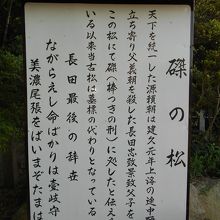 磔の松
天下を統一した源頼朝は建久元年上洛の途中
立ち寄り父義朝を殺した長田忠致景致父子を
この松にて磔(棒つきの刑)に処したと伝え
いる以来当古松は墓標の代わりとなっている
長田最後の辞世
ながらえし命ばかりは壱岐守
美濃尾張をばいまぞたまは